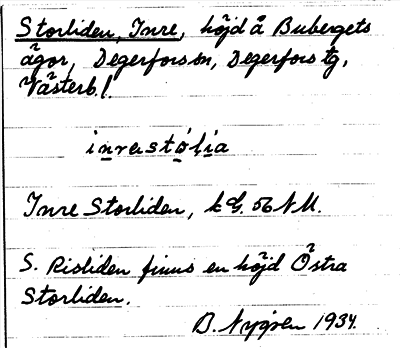 Storliden, Inre, höjd å Bubergets
ägor, Degerfors sn, Degerfors tg,
Västerb. l.
inrastólia
Inre Storliden, k G. 56 N M.
S. Risliden finns en höjd Östra
Storliden.
B. Nygren 1934.